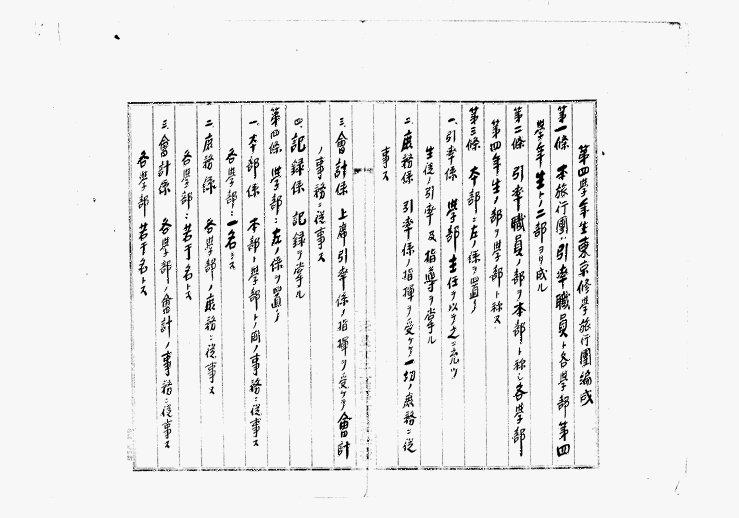 第四學年生東京修學旅行團編成
第一條 本旅行團ハ引率職員ト各學部第四
學年生トノ二部ヨリ成ル
第二條 引率職員ノ部ヲ本部ト称シ各學部
第四年生ノ部ヲ學部ト称ス
第三條 本部ニ左ノ係ヲ置ク
一、引率係 學部主任ヲ以テ之ニ充ツ
生徒ノ引率及指導ヲ掌ル
二、庶務係 引率係ノ指揮ヲ受ケテ一切ノ庶務ニ従
事ス
三、會計係 上席引率係ノ指揮ヲ受ケテ會計
ノ事務ニ従事ス
四、記録係 記録ヲ掌ル
第四條 學部ニ左ノ係ヲ置ク
一、本部係 本部ト學部トノ間ノ事務ニ従事ス
各學部ニ一名トス
二、庶務係 各學部ノ庶務ニ従事ス
各學部ニ若干名トス
三、會計係 各學部ノ會計ノ事務ニ従事ス
各學部若干名トス